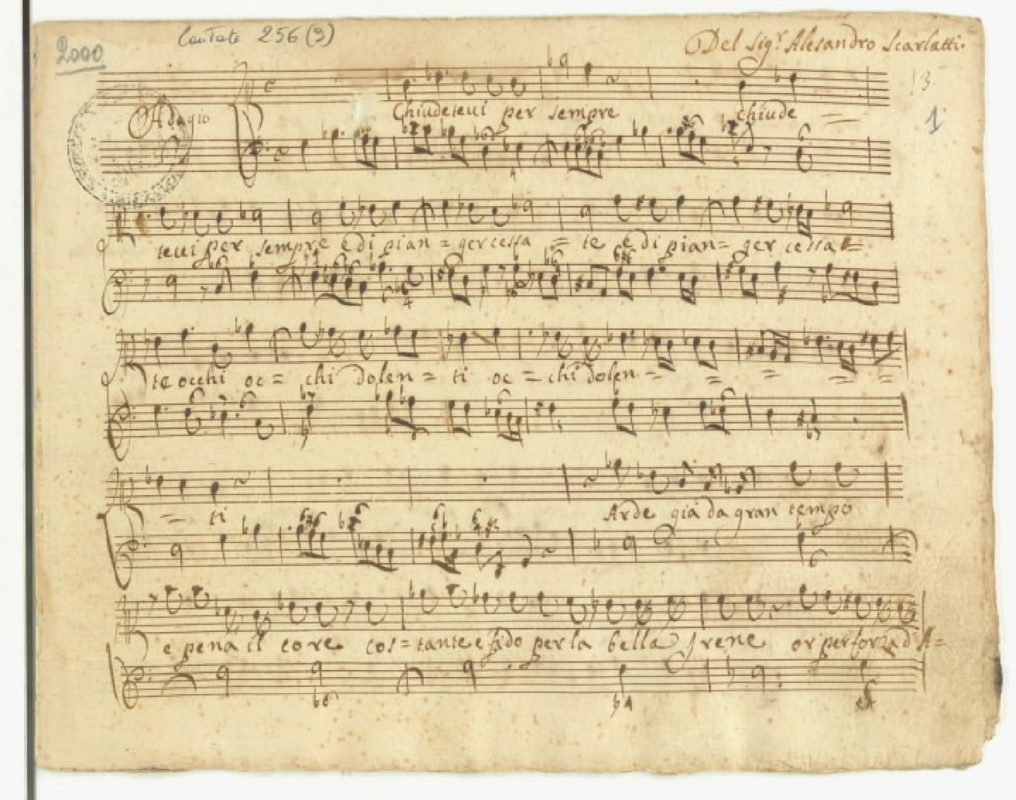 2000 Cantate 256 (9) Del Sig.r Alesandro Scarlatti.
13
1
Adagio
Chiudetevi per sempre chiude =
tevi per sempre e di pian = ger cessa = te e di pian = ger cessa =
te occhi oc = chi dolen = ti oc = chi dolen = = = =
= ti Arde già da gran tempo
e pena il core cos = tante e fido per la bella Irene or per forza d'A =